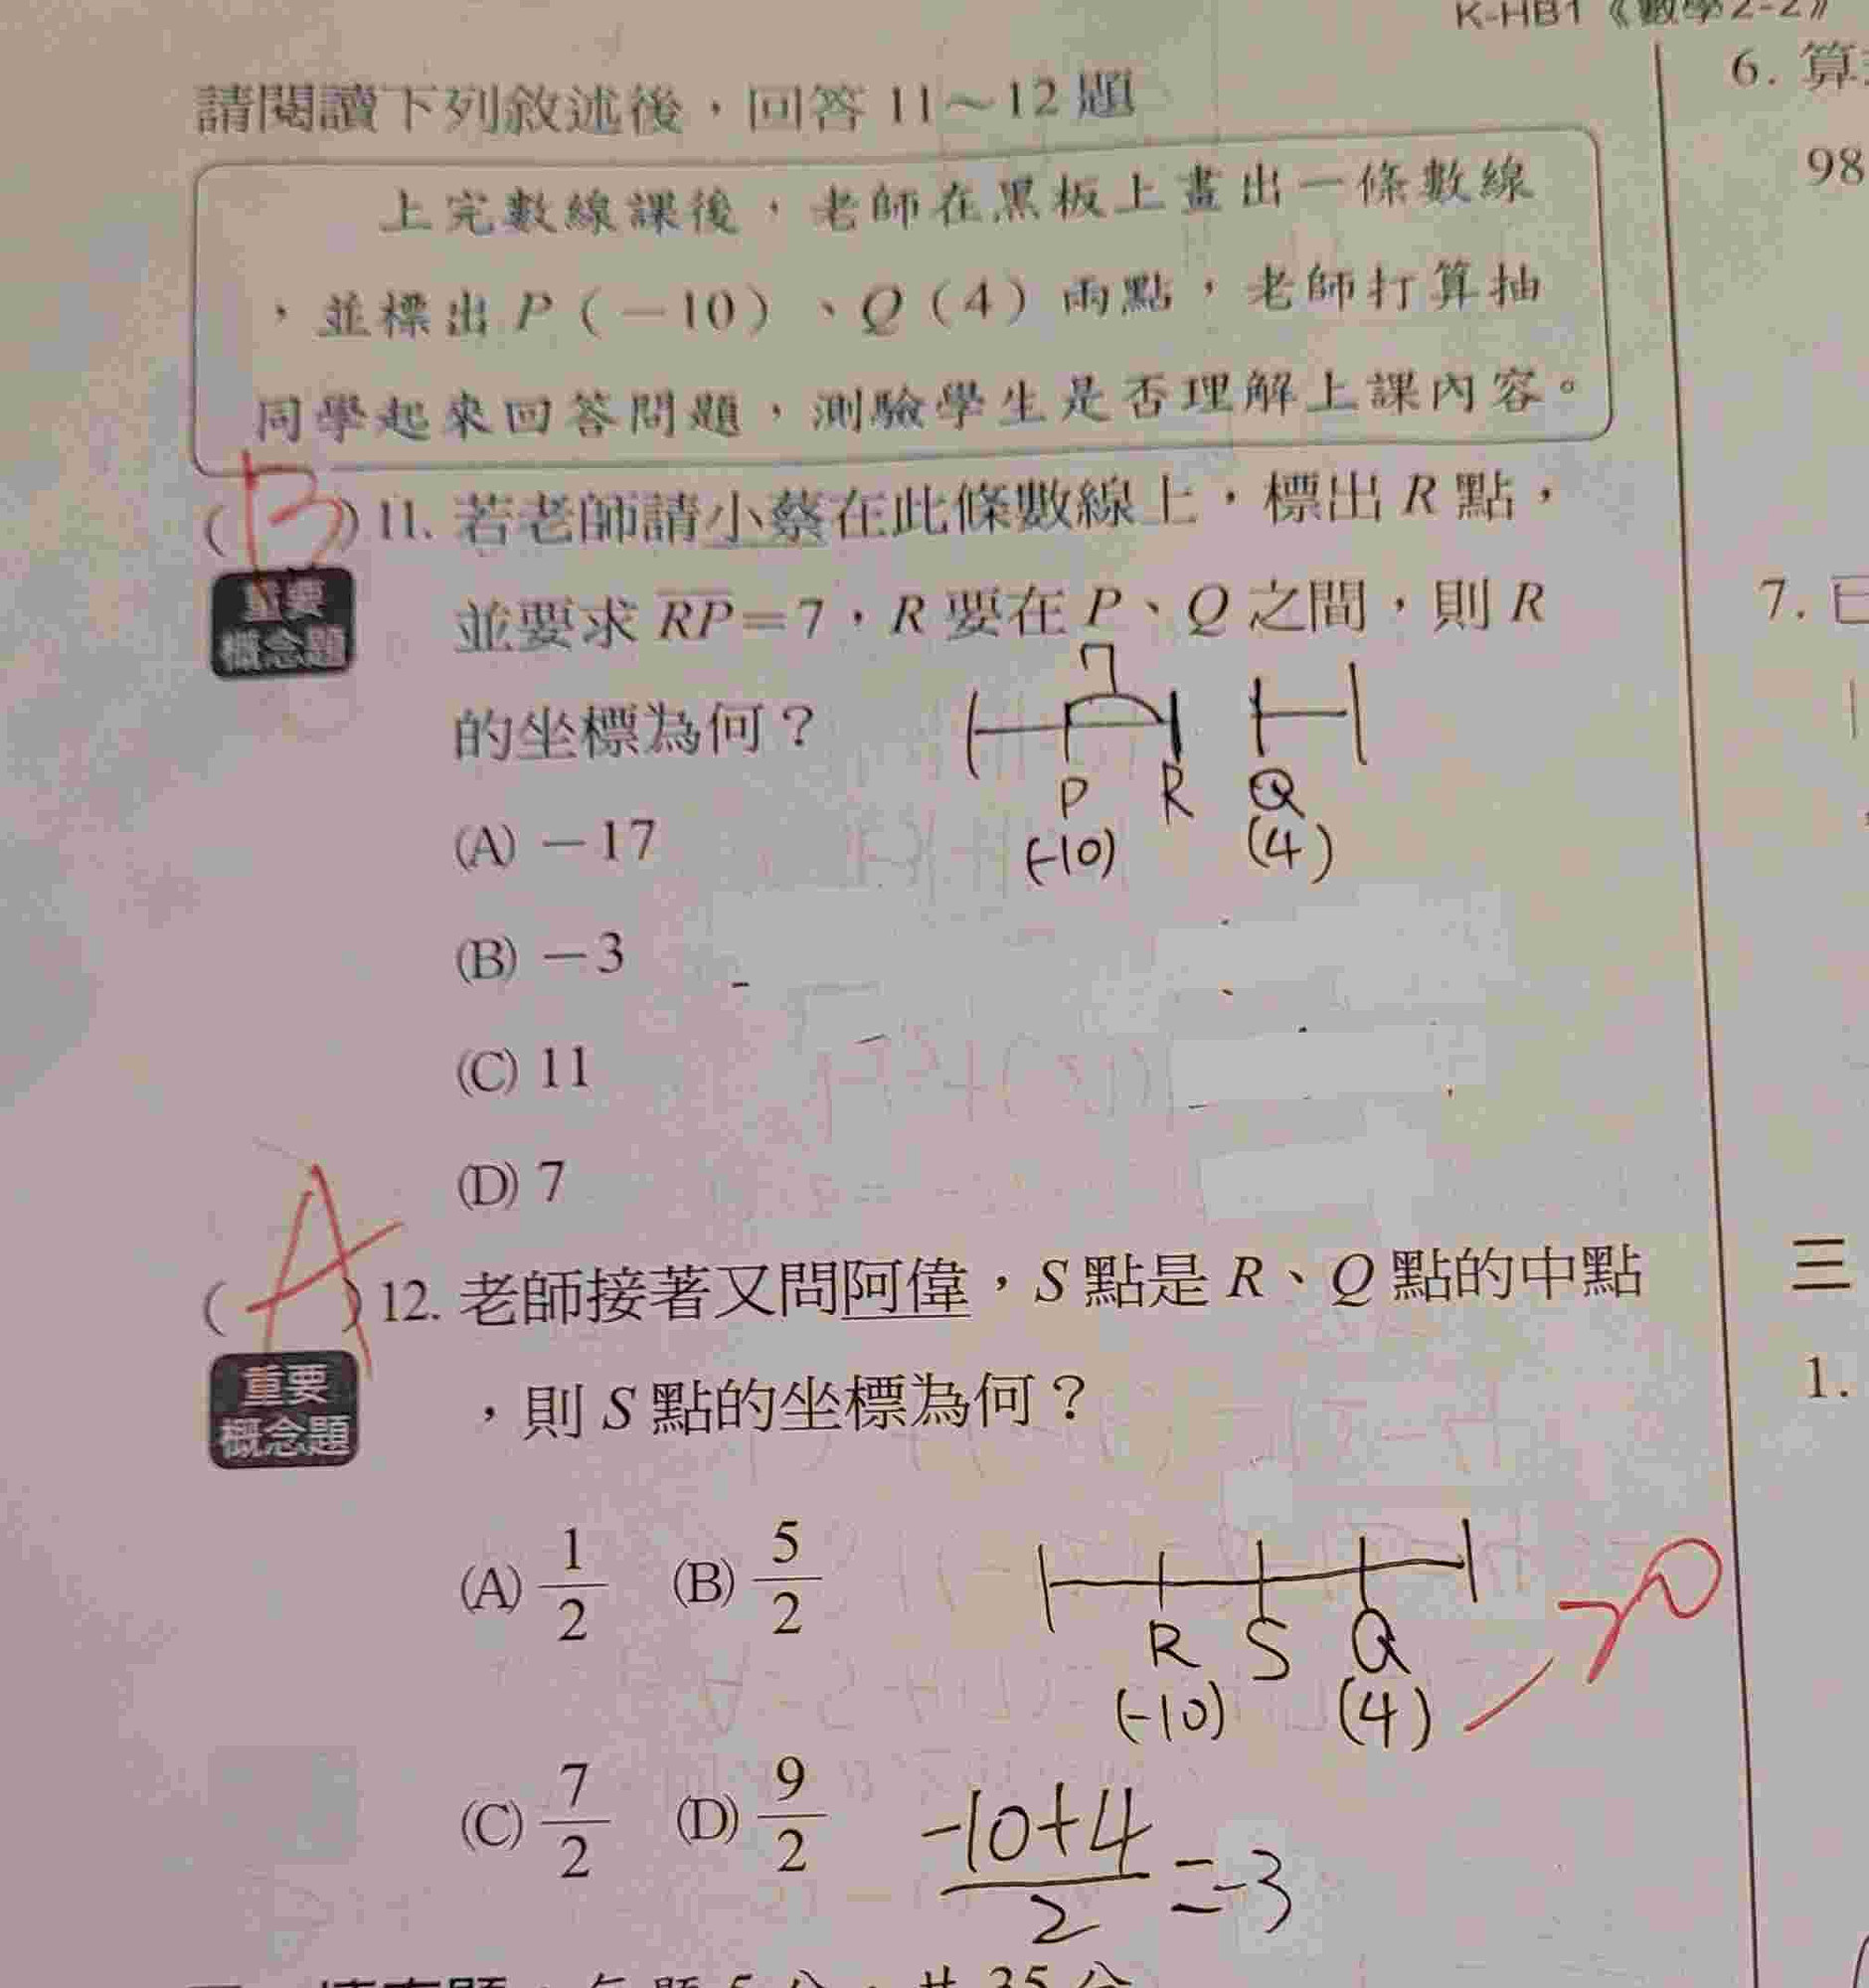 K-HB1《數學2-2》
請閱讀下列敘述後，回答 11～12 題
上完數線課後，老師在黑板上畫出一條數線
，並標出 P（－10）、Q（4）兩點，老師打算抽
同學起來回答問題，測驗學生是否理解上課內容。
( B ) 11. 若老師請小蔡在此條數線上，標出 R 點，
重要
概念題
並要求 RP＝7，R 要在 P、Q 之間，則 R
的坐標為何？
7
P R Q
(-10) (4)
(A) －17
(B) －3
(C) 11
(D) 7
( A ) 12. 老師接著又問阿偉，S 點是 R、Q 點的中點
重要
概念題
，則 S 點的坐標為何？
(A) 1/2 (B) 5/2
R S Q
(-10) (4)
(C) 7/2 (D) 9/2
-10+4/2 = -3
6. 算
98
7. 已
三
1.